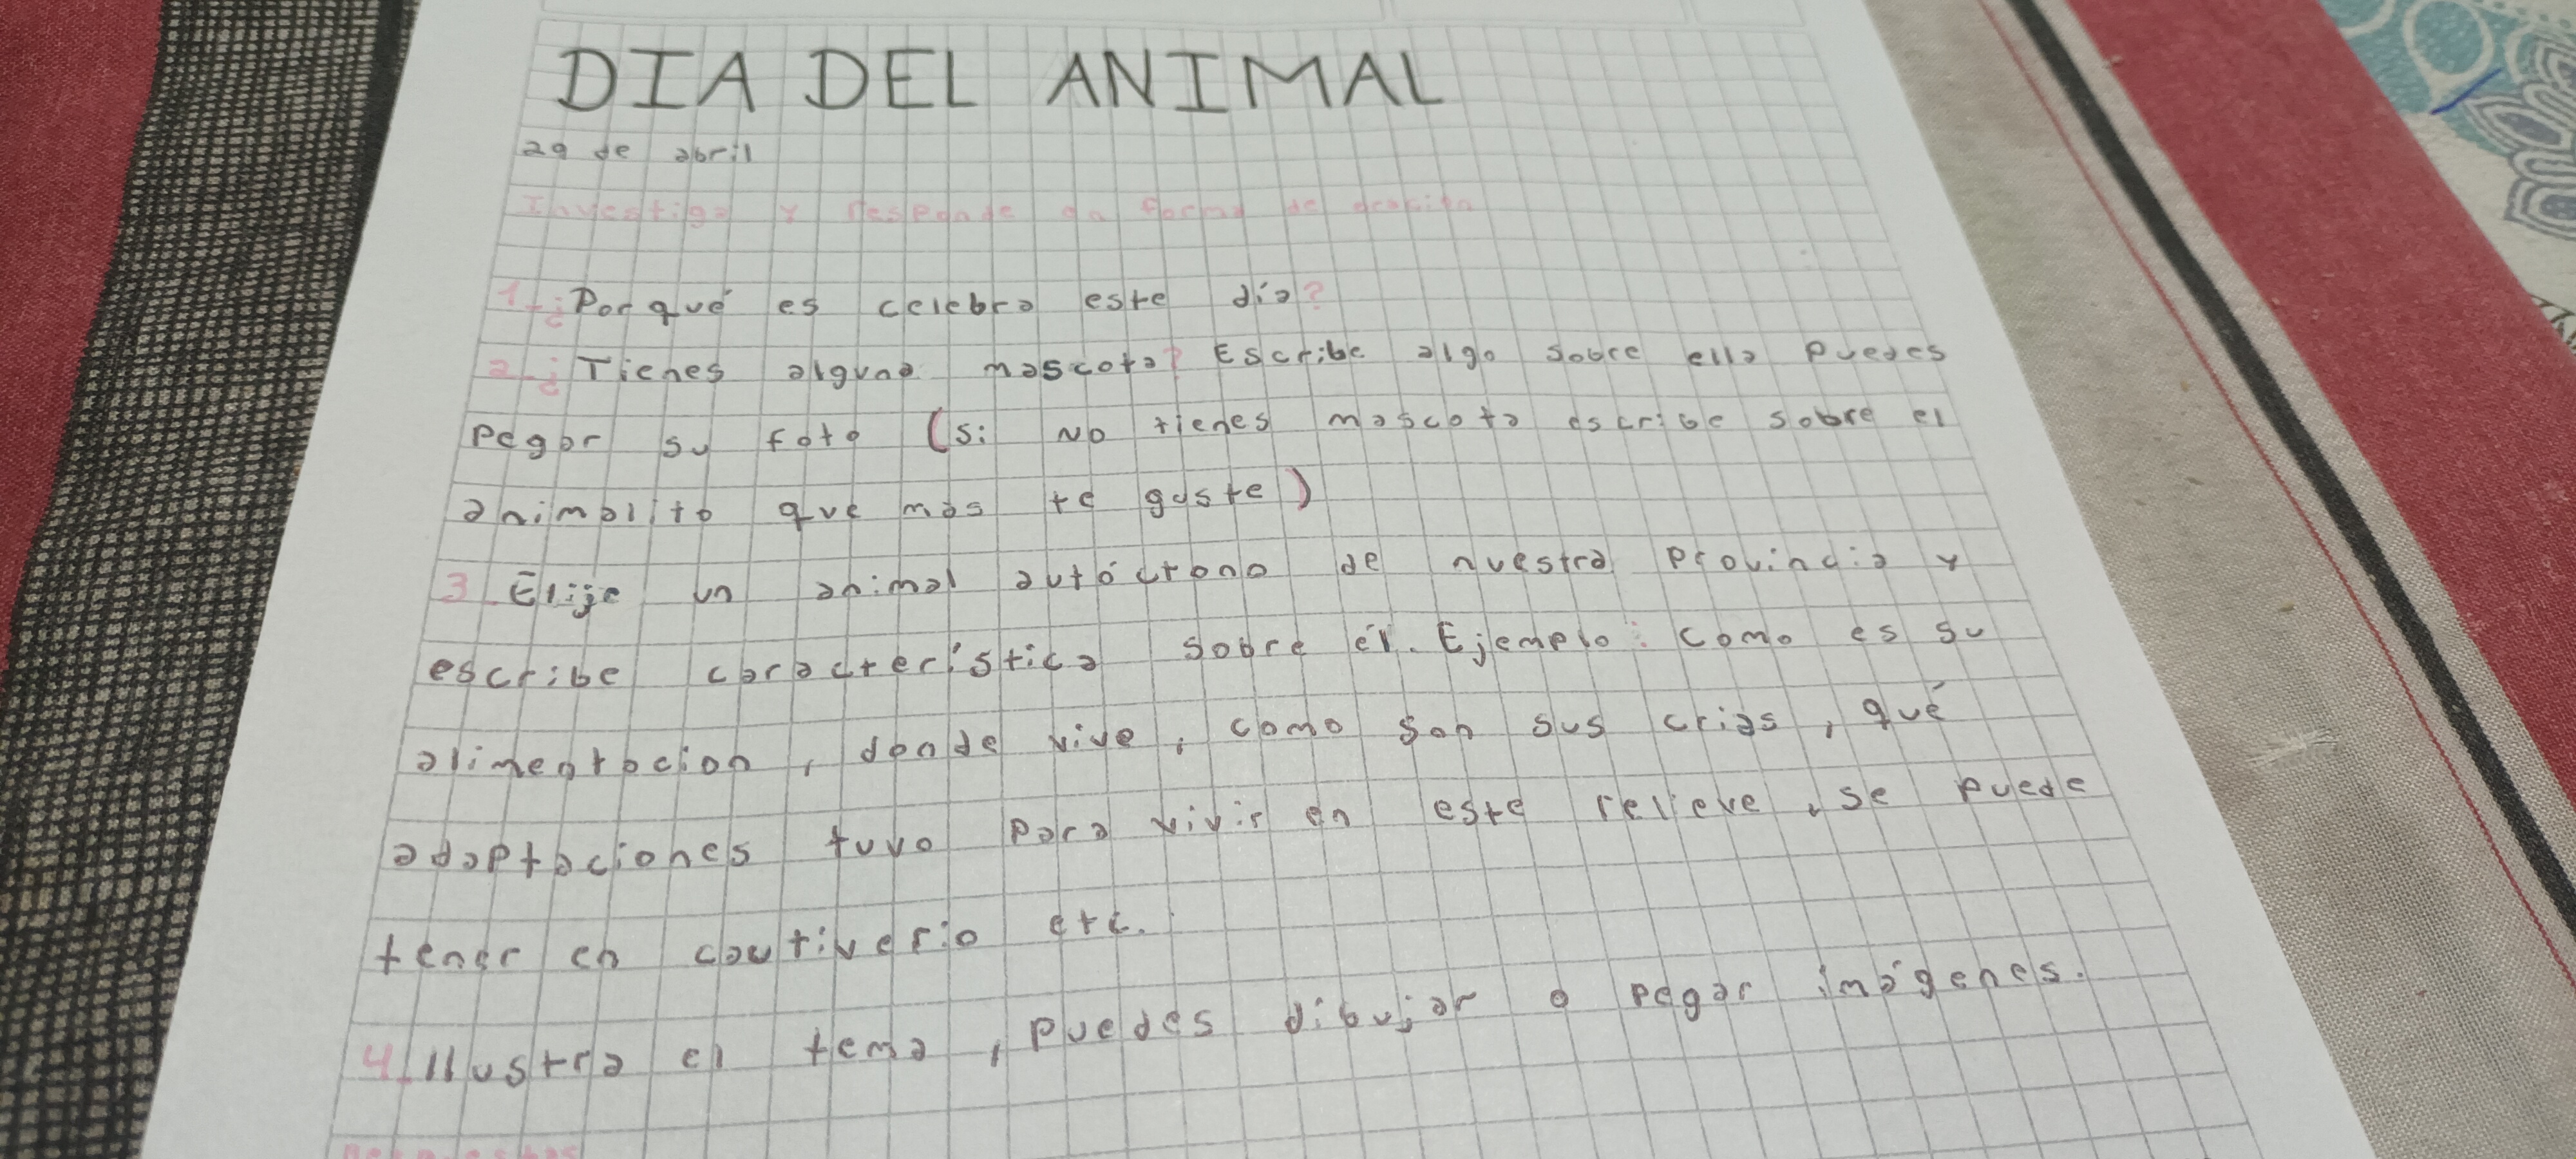 DIA DEL ANIMAL
29 de abril
Investiga y responde en forma de oración
1-¿Por qué es celebra este día?
2-¿Tienes alguna mascota? Escribe algo sobre ella Puedes
Pegar su foto (si No tienes mascota escribe sobre el
animalito que más te guste)
3. Elije un animal autóctrono de nuestra Provincia y
escribe característica sobre él. Ejemplo: como es su
alimentacion, donde vive, como son sus crias, qué
adaptaciones tuvo Para vivir en este relieve, se puede
tener en cautiverio etc.
4. Ilustra el tema, puedes dibujar o pegar imágenes.